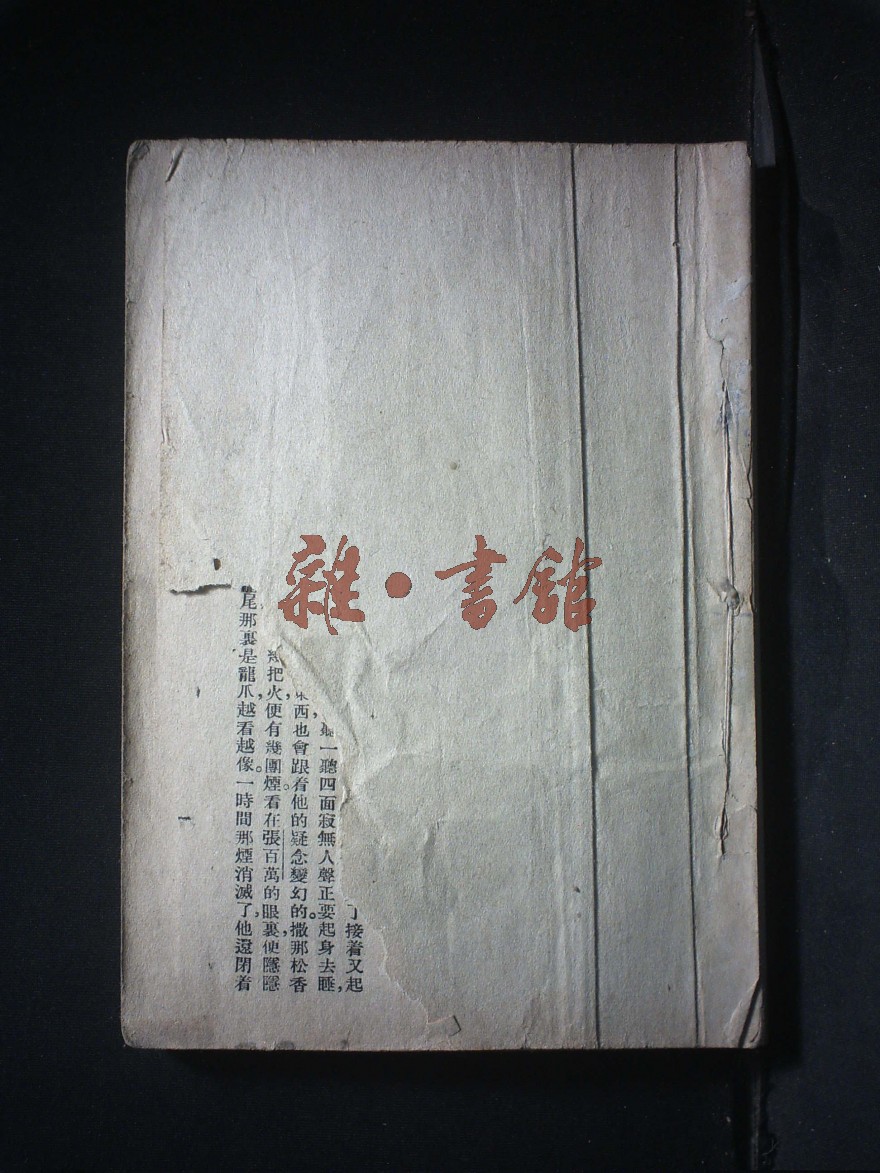 雜•書館
接着又起
一聽四面寂無人聲正要起身去睡,
西也會跟着他的疑念變幻的。撒那松香
把火,便有幾團煙。看在張百萬的眼裏,便隱隱
尾那裏是龍爪,越看越像。一時間那煙消滅了,他還閉着